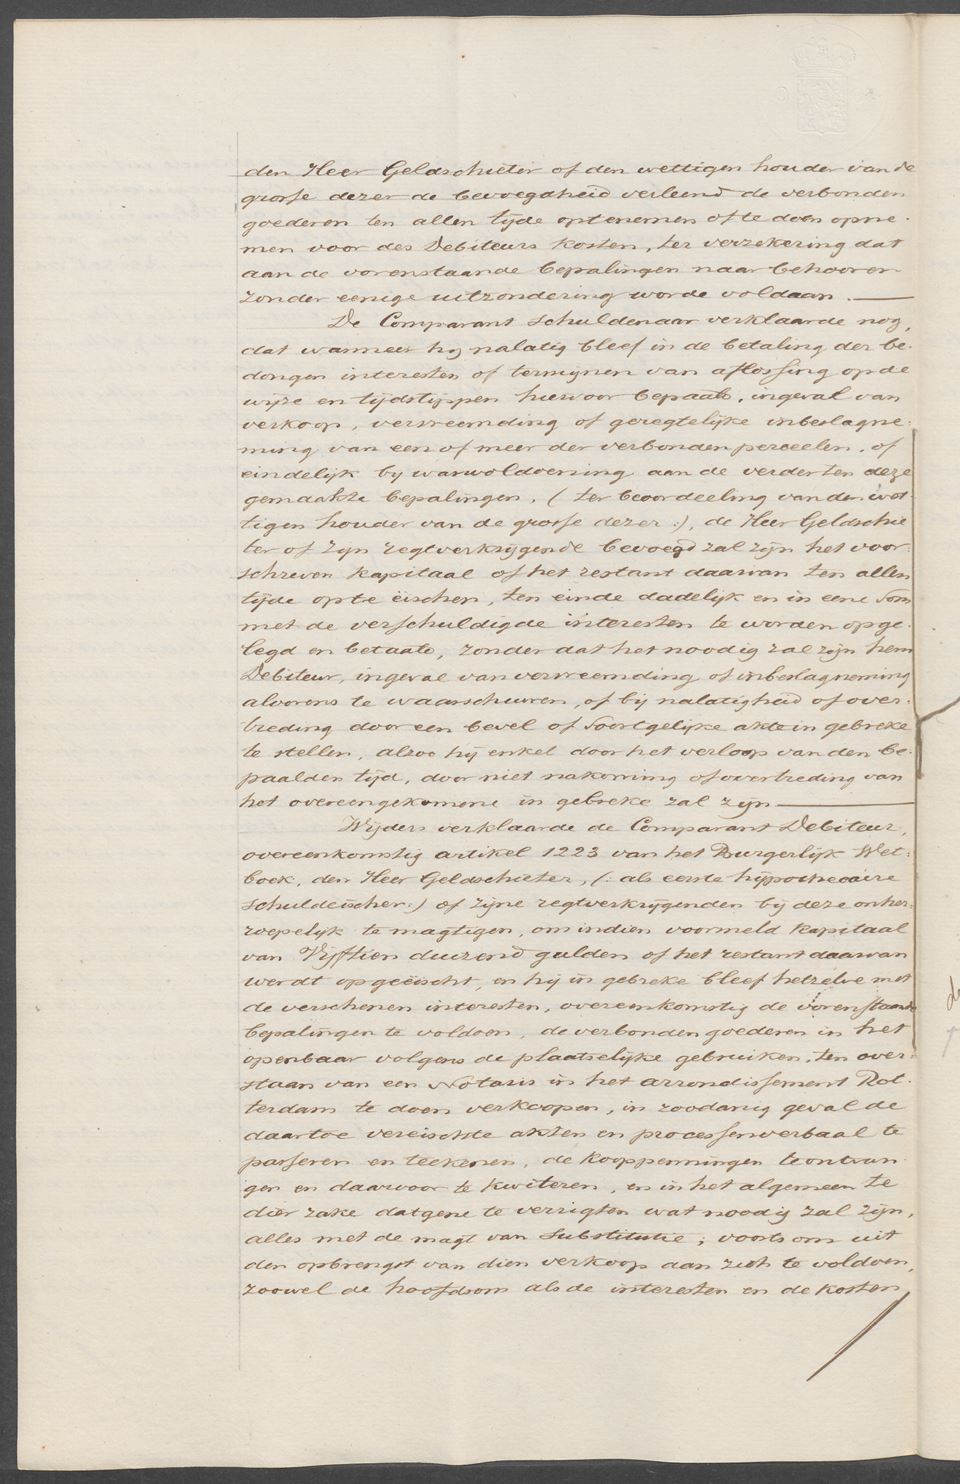 den Heer Geldschieter of den wettigen houder van de
grosse dezer de bevoegdheid verleend de verbonden
goederen ten allen tijde optenemen of te doen opne-
men voor des Debiteurs kosten, ter verzekering dat
aan de vorenstaande bepalingen naar behooren
zonder eenige uitzondering worde voldaan. —
De Comparant schuldenaar verklaarde nog,
dat wanneer hij nalatig bleef in de betaling der be-
dongen interesten of termijnen van aflossing op de
wijze en tijdstippen hiervoor bepaald, ingeval van
verkoop, vervreemding of geregtelijke inbeslagne-
ming van een of meer der verbonden perceelen, of
eindelijk bij wanvoldoening aan de verder ten deze
gemaakte bepalingen, (ter beoordeeling van den wet-
tigen houder van de grosse dezer:), de Heer Geldschie
ter of zijn regtverkrijgende bevoegd zal zijn het voor-
schreven kapitaal of het restant daarvan ten allen
tijde opte eischen, ten einde dadelijk en in eene som
met de verschuldigde interesten te worden opge-
legd en betaald, zonder dat het noodig zal zijn hem
Debiteur, ingeval van vervreemding of inbeslagneming
alvorens te waarschuwen, of bij nalatigheid of over-
treding door een bevel of soortgelijke akte in gebreke
te stellen, alzoo hij enkel door het verloop van den be-
paalden tijd, door niet nakoming of overtreding van
het overeengekomene in gebreke zal zijn —
Wijders verklaarde de Comparant Debiteur,
overeenkomstig artikel 1223 van het Burgerlijk Wet-
boek, den Heer Geldschieter, (: als eerste hypothecaire
schuldeischer:) of zijne regtverkrijgenden bij deze onher-
roepelijk te magtigen, om indien voormeld kapitaal
van Vijftien duizend gulden of het restant daarvan
werdt opgeëischt, en hij in gebreke bleef hetzelve met
de verschenen interesten, overeenkomstig de vorenstaande
bepalingen te voldoen, de verbonden goederen in het
openbaar volgens de plaatselijke gebruiken, ten over-
staan van een Notaris in het arrondissement Rot-
terdam te doen verkoopen, in zoodanig geval de
daartoe vereischte akten en processenverbaal te
passeren en teekenen, de kooppenningen teontvan-
gen en daarvoor te kwiteren, en in het algemeen te
dier zake datgene te verrigten wat noodig zal zijn,
alles met de magt van substitutie; voorts om uit
den opbrengst van dien verkoop aan zich te voldoen,
zoowel de hoofdsom als de interesten en de kosten